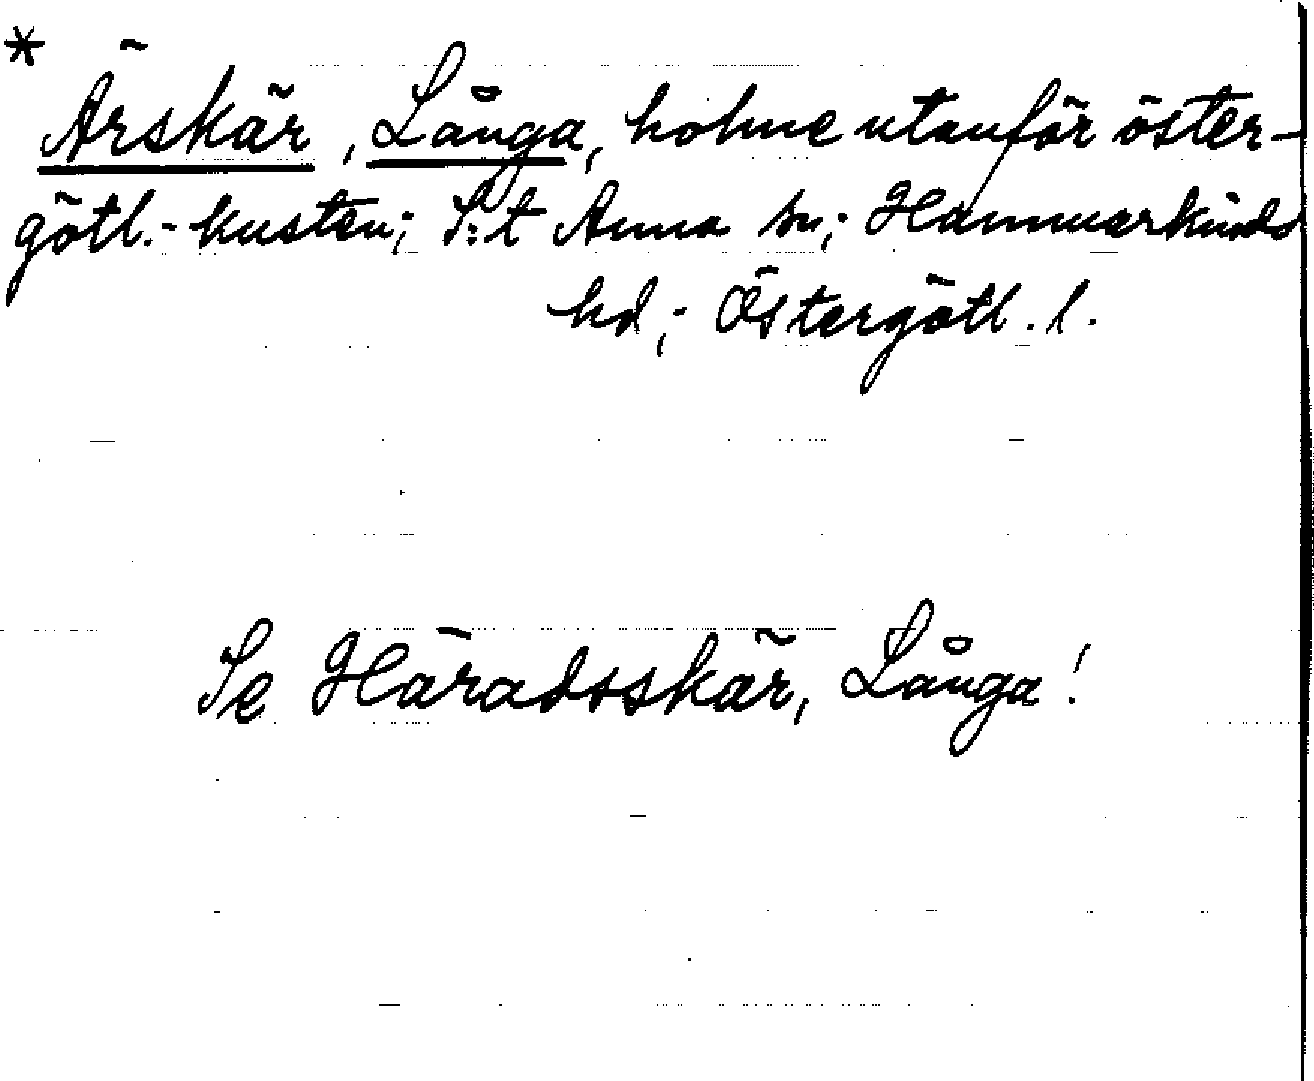 * Ärskär, Långa, holme utanför öster-
götl.-kusten; S:t Anna sn; Hammarkinds
hd; Östergötl. l.
Se Häradsskär, Långa!